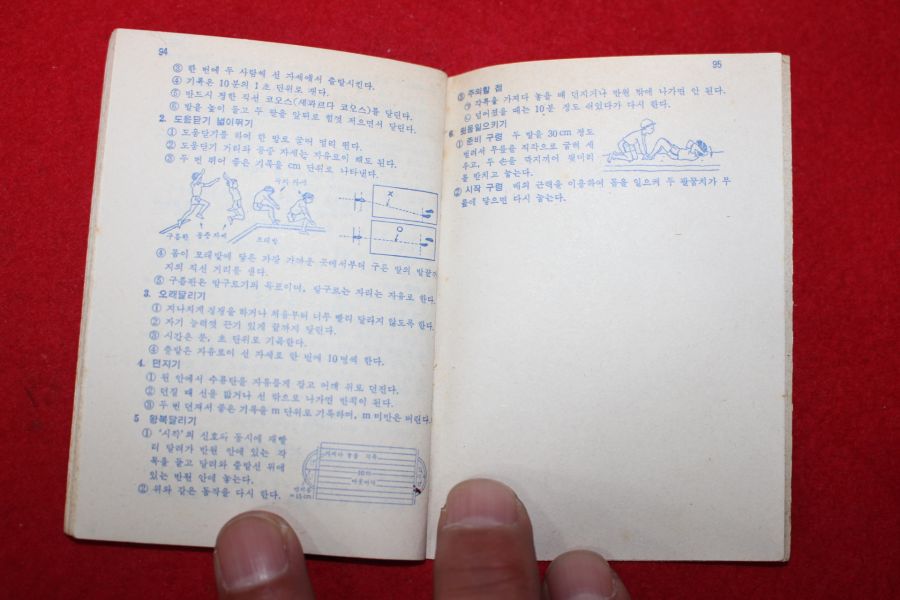 94
③ 한 번에 두 사람씩 선 자세에서 출발시킨다.
④ 기록은 10분의 1초 단위로 잰다.
⑤ 반드시 정한 직선 코오스(세파르다 코오스)를 달린다.
⑥ 발을 높이 들고 두 팔을 앞뒤로 힘껏 저으면서 달린다.
2. 도움닫기 넓이뛰기
① 도움닫기를 하여 한 발로 굴러 멀리 뛴다.
② 도움닫기 거리와 공중 자세는 자유로이 해도 된다.
③ 두 번 뛰어 좋은 기록을 cm 단위로 나타낸다.
구름판 공중자세
모래밭
X
O
④ 몸이 모래밭에 닿은 가장 가까운 곳에서부터 구른 발의 발끝까
지의 직선 거리를 잰다.
⑤ 구름판은 발구르기의 목표이며, 발구르는 자리는 자유로 한다.
3. 오래달리기
① 지나치게 긴장을 하거나 처음부터 너무 빨리 달리지 않도록 한다.
② 자기 능력껏 끈기 있게 끝까지 달린다.
③ 시간은 분, 초 단위로 기록한다.
④ 출발은 자유로이 선 자세로 한 번에 10명씩 한다.
4. 던지기
① 원 안에서 수류탄을 자유롭게 잡고 어깨 위로 던진다.
② 던질 때 선을 밟거나 선 밖으로 나가면 반칙이 된다.
③ 두 번 던져서 좋은 기록을 m 단위로 기록하며, m 미만은 버린다.
5 왕복달리기
① '시작'의 신호와 동시에 재빨
리 달려가 반원 안에 있는 각
목을 들고 달려와 출발선 위에
있는 반원 안에 놓는다.
② 위와 같은 동작을 다시 한다.
10m
95
③ 주의할 점
㉠ 각목을 가져다 놓을 때 던지거나 반원 밖에 나가면 안 된다.
㉡ 넘어졌을 때는 10분 정도 쉬었다가 다시 한다.
6. 윗몸일으키기
① 준비 구령 두 발을 30cm 정도
벌려서 무릎을 직각으로 굽혀 세
우고, 두 손을 깍지끼어 뒷머리
를 받치고 눕는다.
② 시작 구령 배의 근력을 이용하여 몸을 일으켜 두 팔꿈치가 무
릎에 닿으면 다시 눕는다.